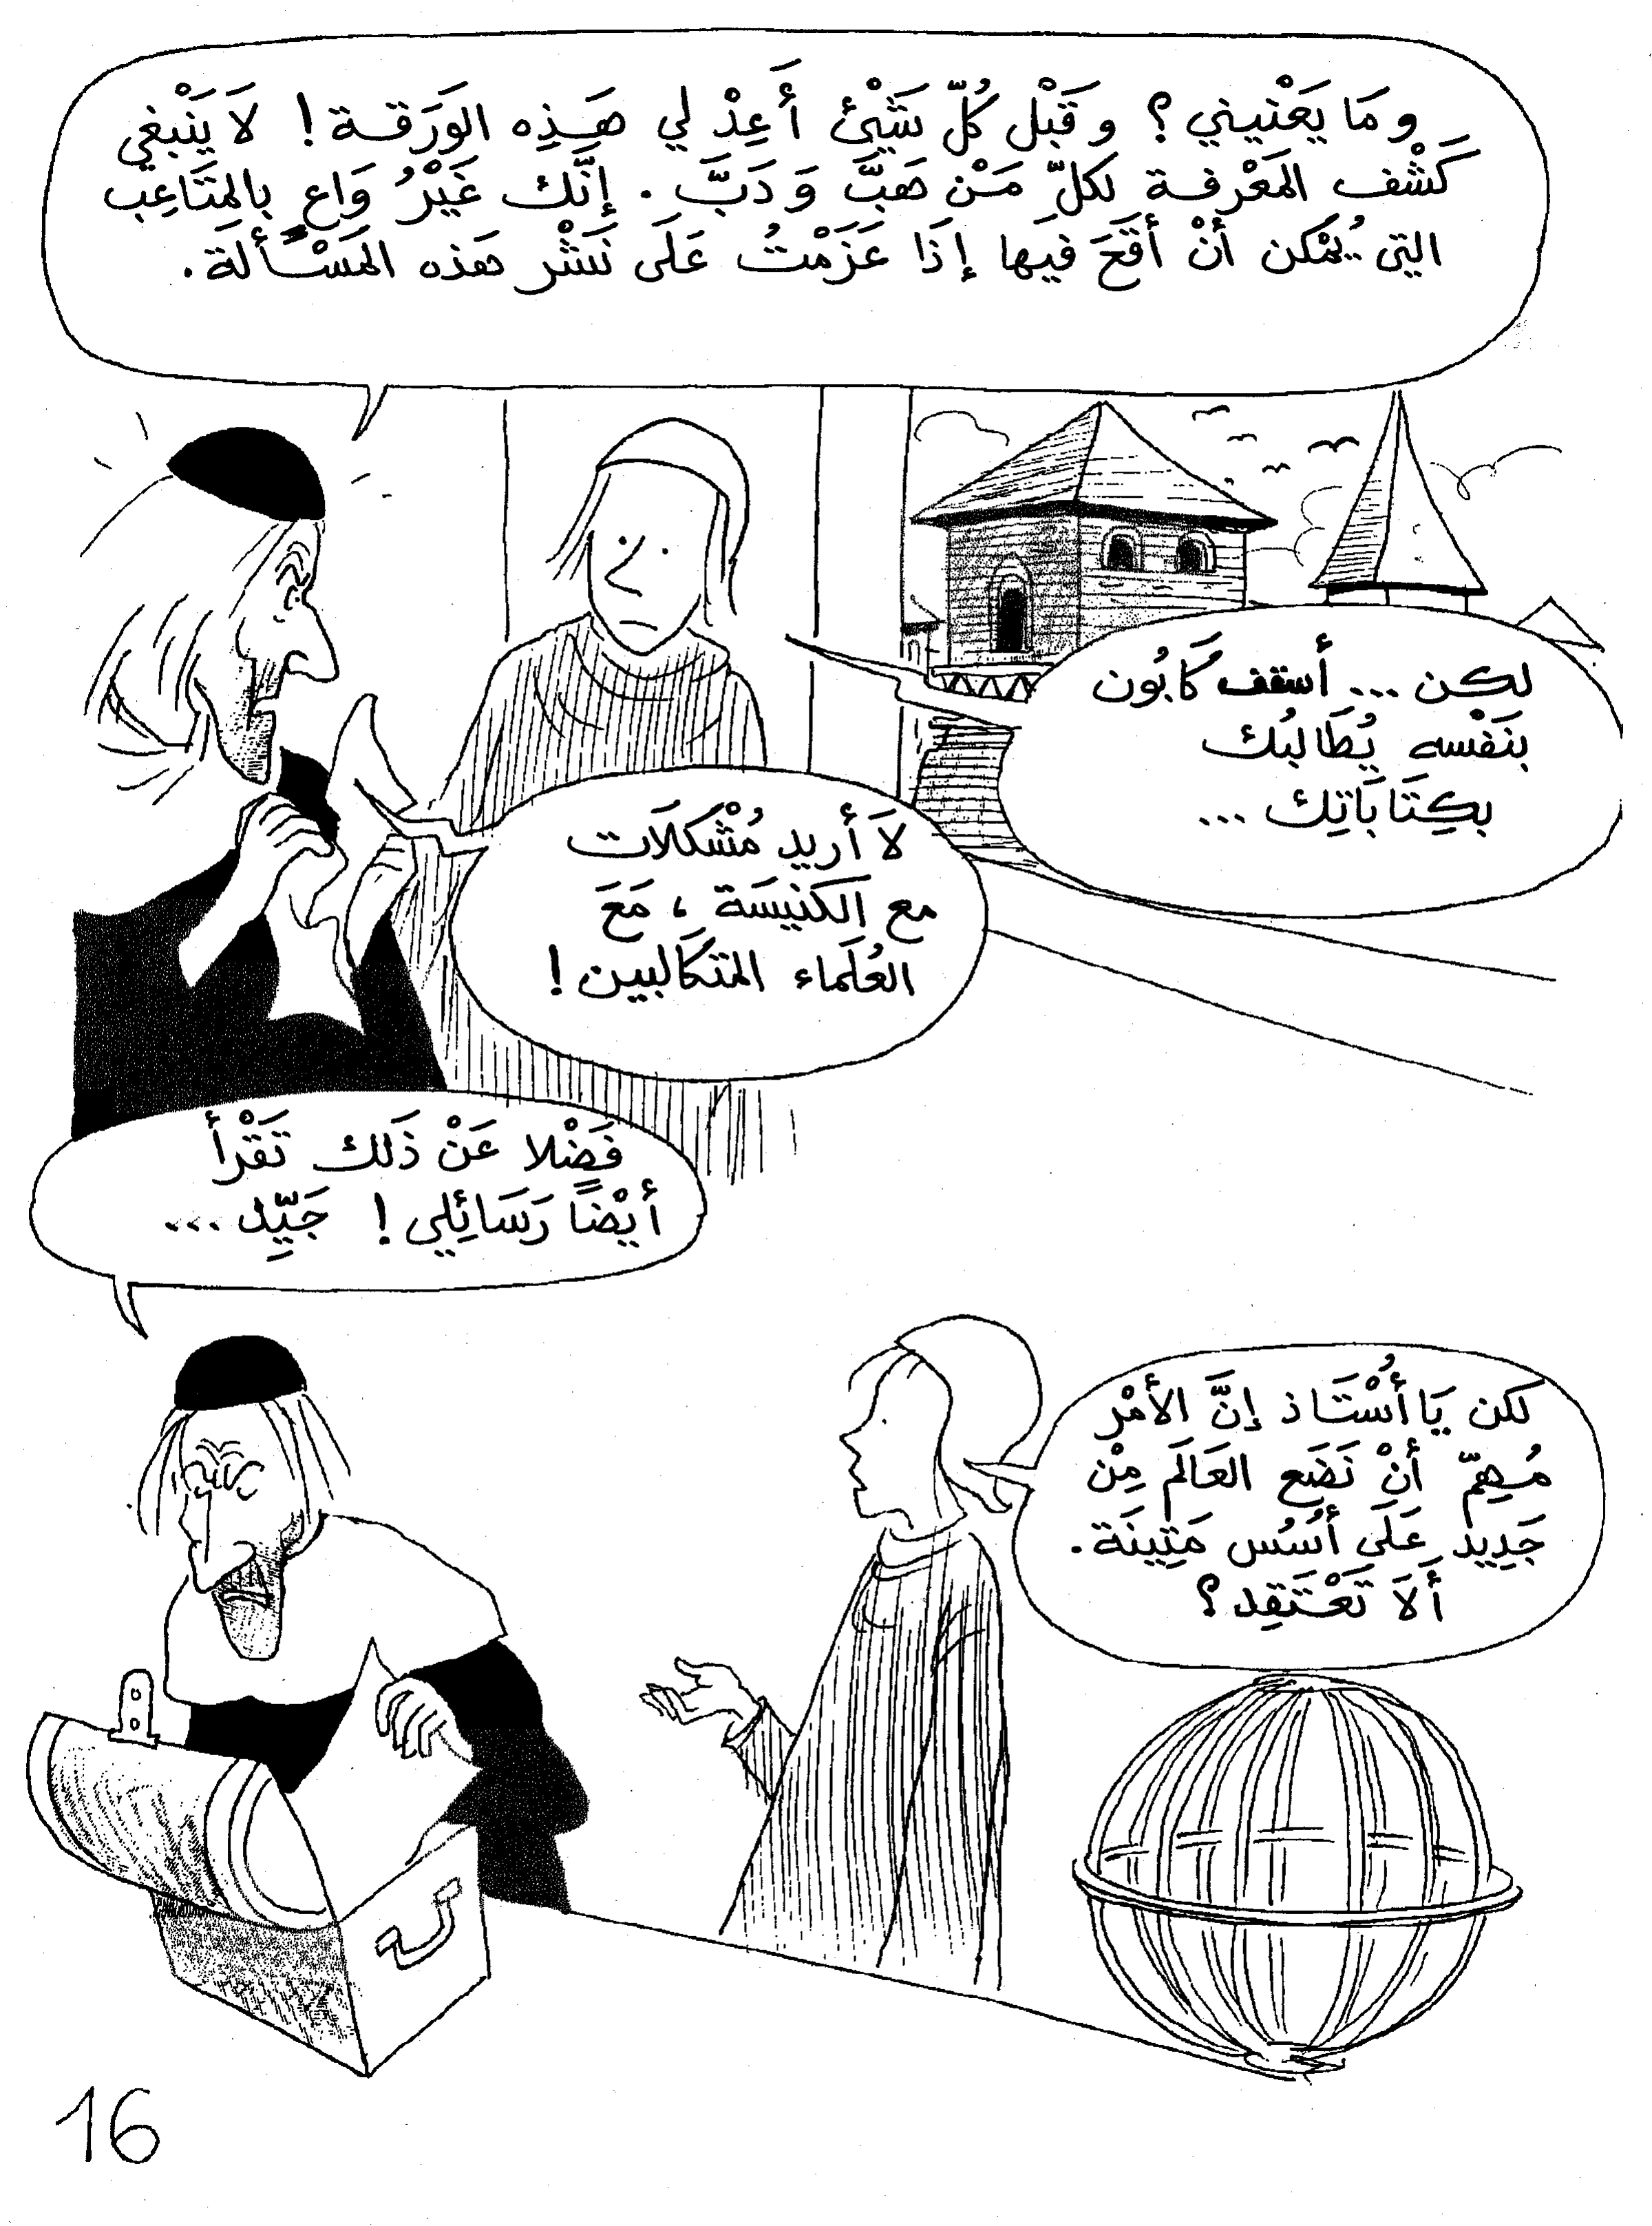 وَمَا يَعْنيني؟ وقَبْل كُلّ شَيْئ أَعِدْ لي هَـذِه الوَرَقـة! لَا يَنْبغي
كَشْف المَعْرفـة لكلّ مَـنْ هَبَّ وَ دَبَّ . إنَّك غَيْرُ وَاعٍ بِالمتَاعِب
التي يُمْكن أنْ أقَعَ فيَها إذَا عَزَمْتُ عَلَى نَشْر هَذه المَسْألَة.
لكن ... أسقف كَابُون
بنَفْسه يُطَالبُك
بكِتَابَاتِك ...
لَا أريد مُشْكلَات
مع الكَنيسَة ، مَعَ
العُلَماء المتكَالبين !
فَضْلا عَنْ ذَلك تَقْرأ
أيْضًا رَسَائِلي ! جَيِّد ...
لكن يَا أُسْتَاذ إنَّ الأمْر
مُـهِمّ أنْ نَضَع العَالَم مِنْ
جَدِيد عَلَى أسُس مَتِينَة .
أَلَا تَعْـتَقِد؟
16